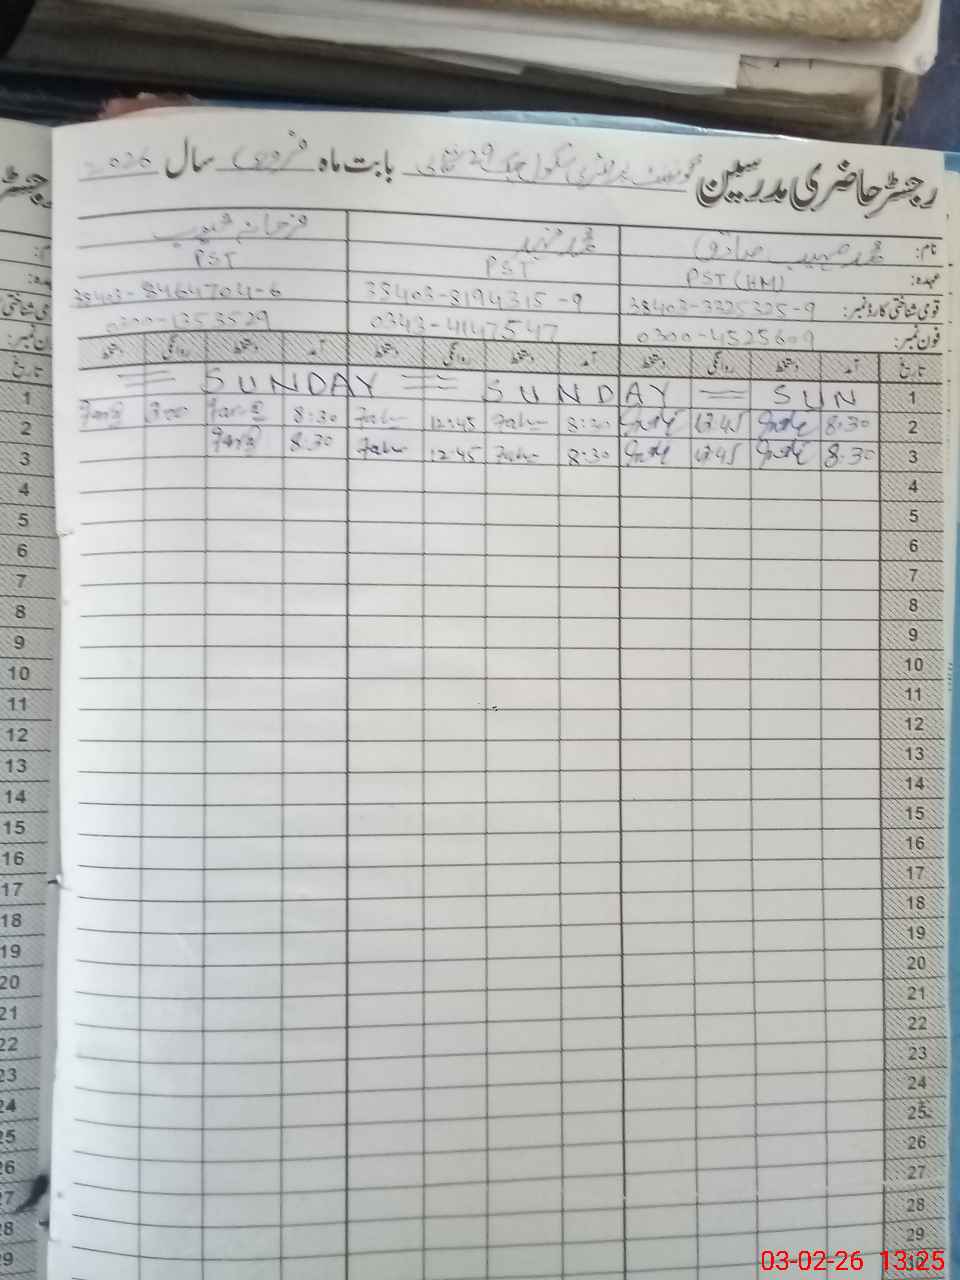 رجسٹر حاضری مدرسین گورنمنٹ پرائمری سکول چک 29 شمالی بابت ماہ فروری سال 2026
نام: محمد صہیب صادق فرحانہ
عہدہ: PST (HM) PST PST
قومی شناختی کارڈ نمبر: 38403-3325325-9 38403-8194315-9 38403-8464704-6
فون نمبر: 0300-4525609 0343-4147547 0300-1353529
تاریخ آمد دستخط روانگی دستخط آمد دستخط روانگی دستخط آمد دستخط روانگی دستخط
1 = SUNDAY = SUNDAY = SUN
2 8:30 12:45 8:30 12:45 8:30 1:00
3 8:30 12:45 8:30 12:45 8:30
4
5
6
7
8
9
10
11
12
13
14
15
16
17
18
19
20
21
22
23
24
25
26
27
28
29
30
03-02-26 13:25